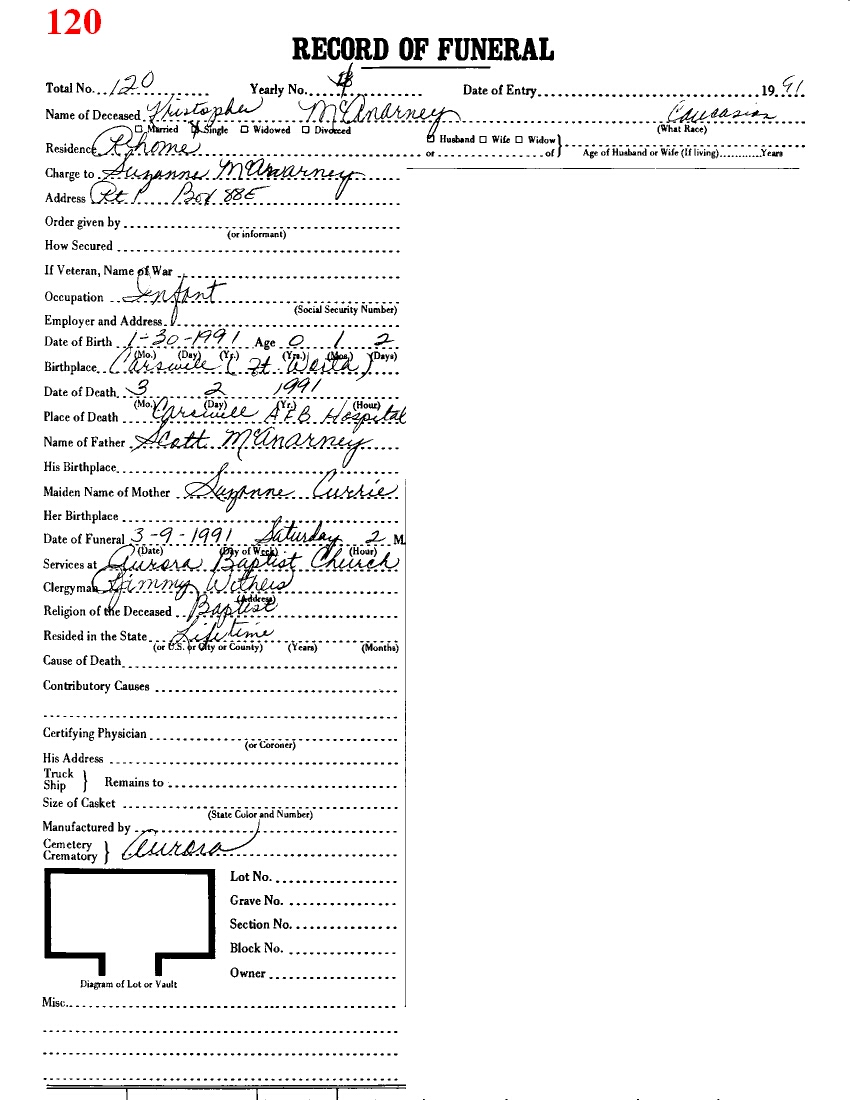 120
RECORD OF FUNERAL
Total No. 120 Yearly No. Date of Entry 1991
Name of Deceased Kristopher McAnarney Caucasian
☐ Married ☑ Single ☐ Widowed ☐ Divorced (What Race)
☐ Husband ☐ Wife ☐ Widow }
Residence Rhome or of } Age of Husband or Wife (If living) Years
Charge to Suzanne McAnarney
Address Rt 1 Box 88E
Order given by
(or informant)
How Secured
If Veteran, Name of War
Occupation Infant
(Social Security Number)
Employer and Address
Date of Birth 1-30-1991 Age 0 1 2
(Mo.) (Day) (Yr.) (Yrs.) (Mos.) (Days)
Birthplace Carswell (Ft. Worth)
Date of Death 3 2 1991
(Mo.) (Day) (Yr.) (Hour)
Place of Death Carswell AFB Hospital
Name of Father Scott McAnarney
His Birthplace
Maiden Name of Mother Suzanne Currie
Her Birthplace
Date of Funeral 3-9-1991 Saturday 2 M
(Date) (Day of Week) (Hour)
Services at Aurora Baptist Church
Clergyman Jimmy Withers
(Address)
Religion of the Deceased Baptist
Resided in the State Lifetime
(or U.S. or City or County) (Years) (Months)
Cause of Death
Contributory Causes
Certifying Physician
(or Coroner)
His Address
Truck
Ship } Remains to
Size of Casket
(State Color and Number)
Manufactured by
Cemetery
Crematory } Aurora
Lot No.
Grave No.
Section No.
Block No.
Owner
Diagram of Lot or Vault
Misc.